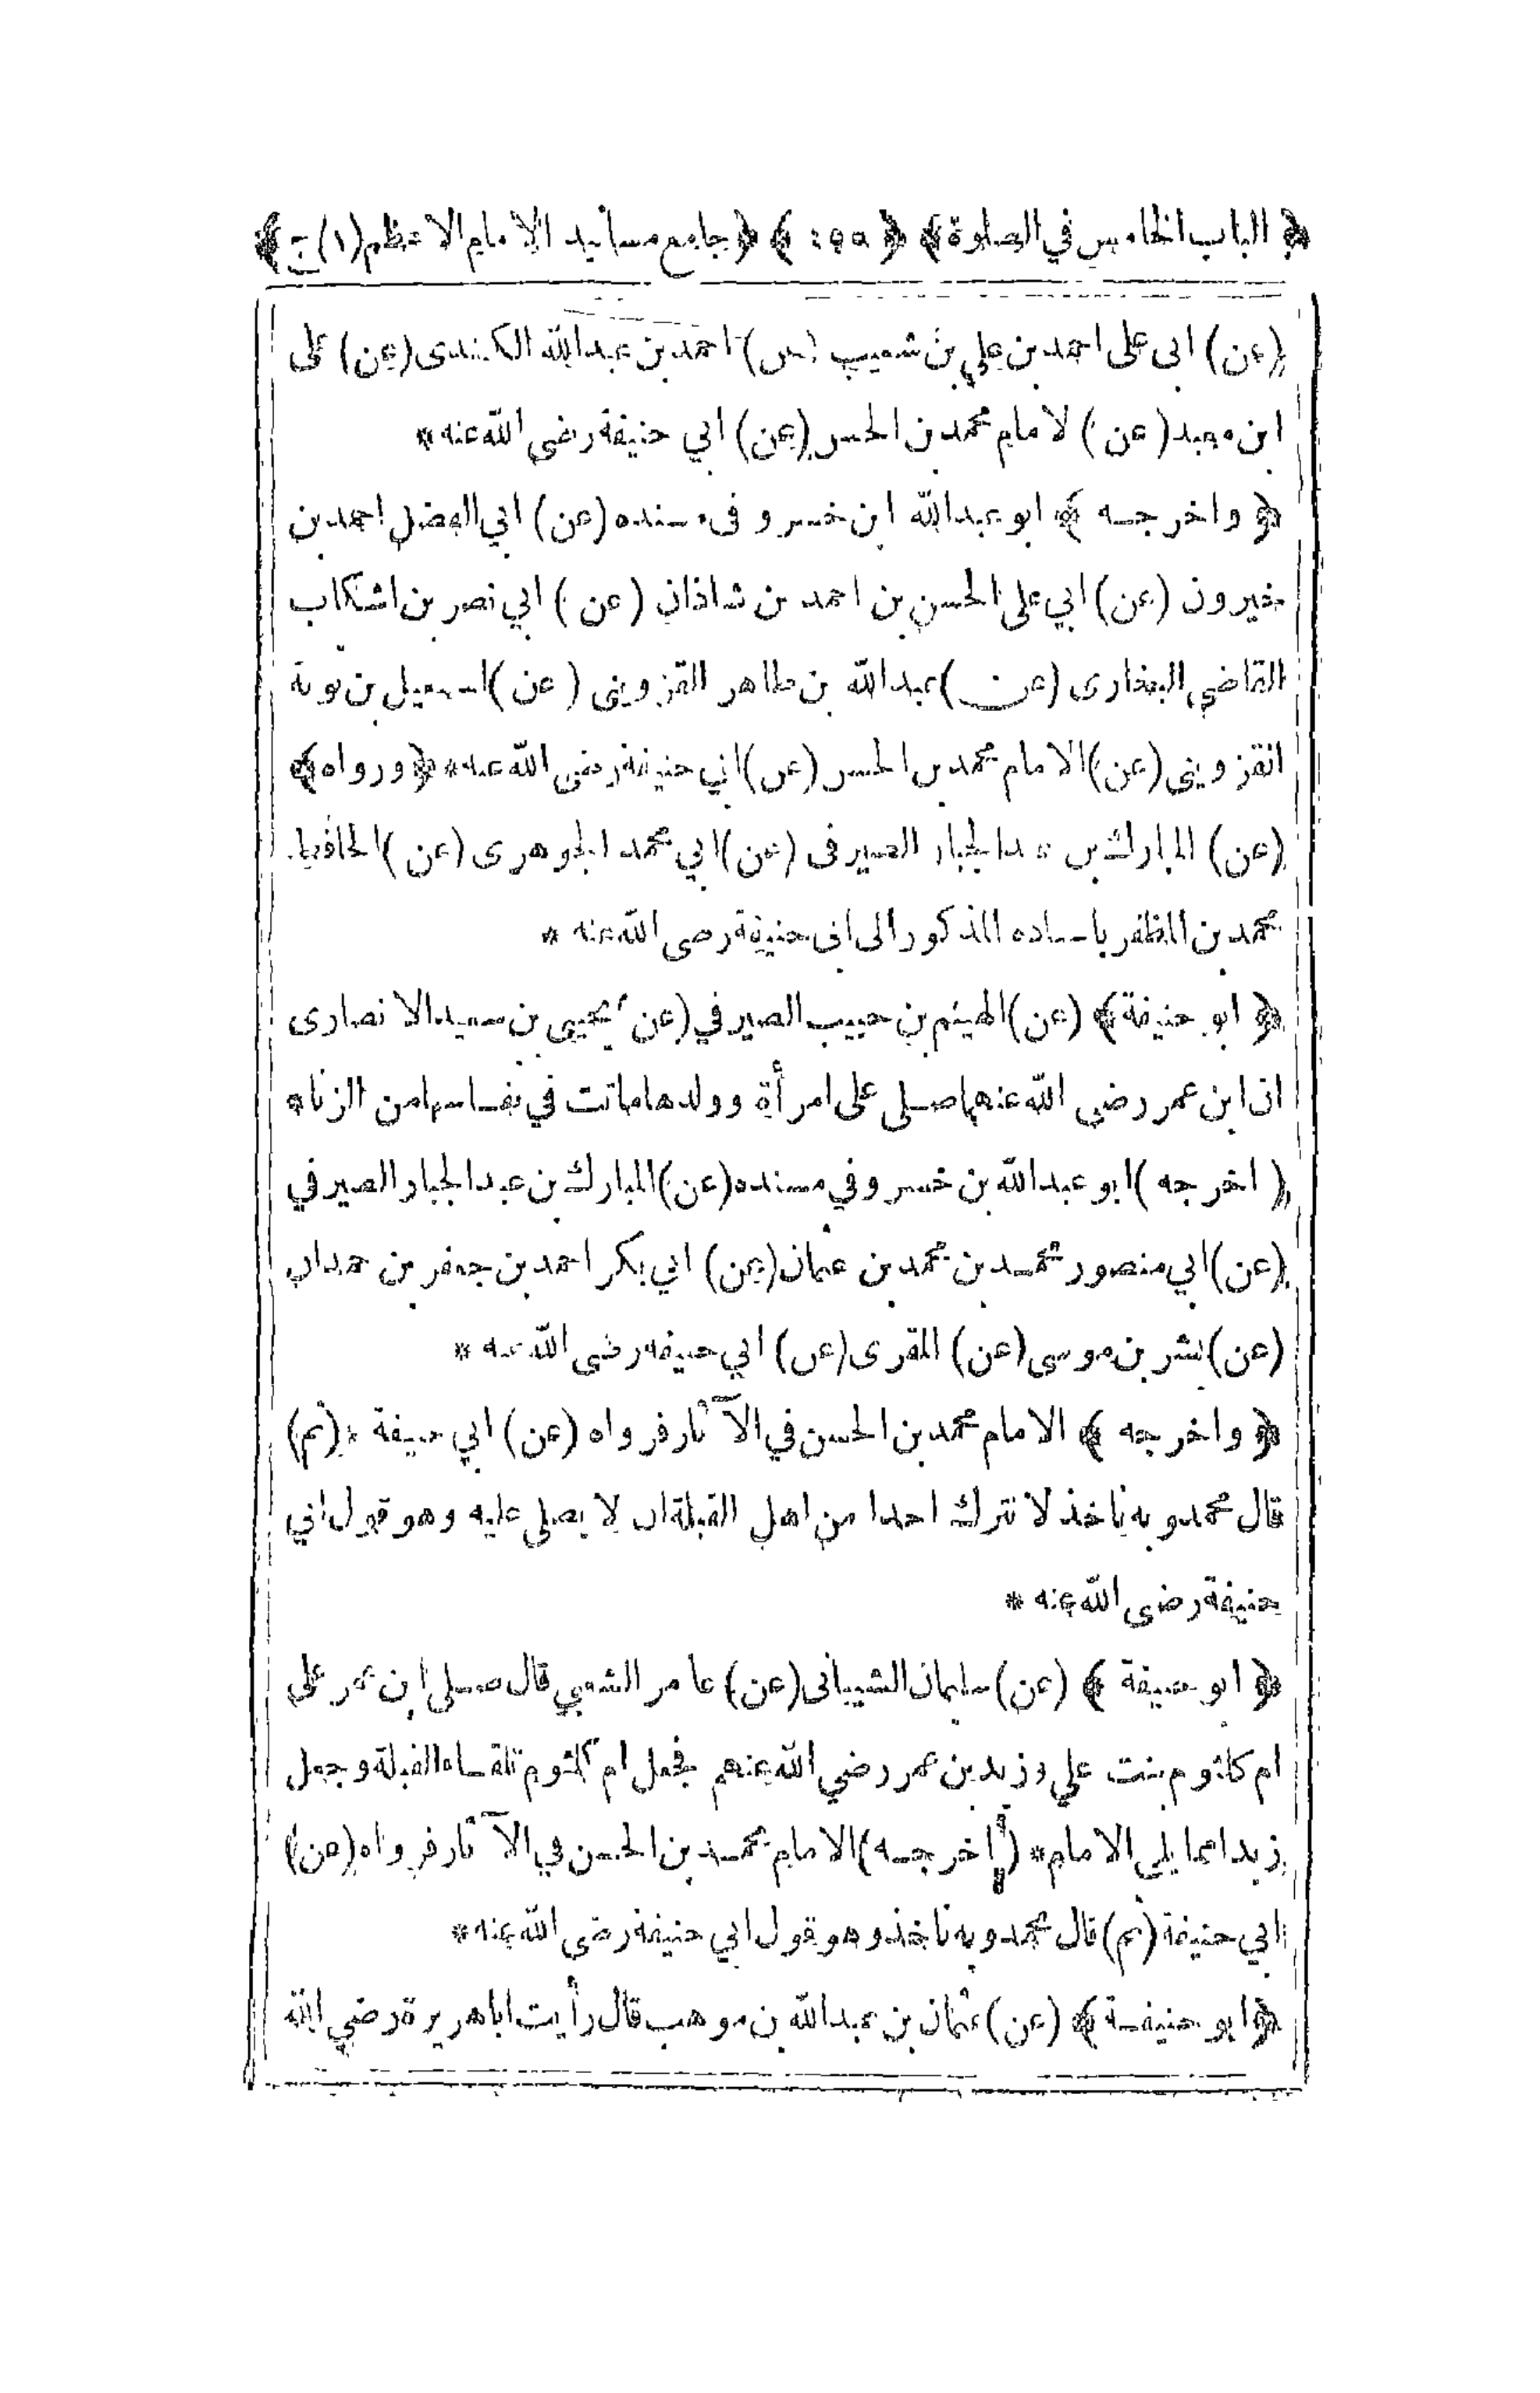 ﴿ الباب الخامس في الصلوة ﴾ ﴿ ٤٥٥ ﴾ ﴿ جامع مسانيد الامام الاعظم (١) ج ﴾
(عن) ابى على احمد بن علي بن شعيب (عن) احمد بن عبدالله الكندى (عن) على
ابن معبد (عن) الامام محمد بن الحسن (عن) ابي حنيفة رضى الله عنه *
﴿ واخرجه ﴾ ابو عبدالله ابن خسرو فى مسنده (عن) ابي الفضل احمد بن
خيرون (عن) ابي على الحسن بن احمد بن شاذان (عن) ابي نصر بن اشكاب
القاضي البخارى (عن) عبدالله بن طاهر القزوينى (عن) اسمعيل بن توبة
القزوينى (عن) الامام محمد بن الحسن (عن) ابي حنيفة رضى الله عنه * ﴿ ورواه ﴾
(عن) المبارك بن عبدالجبار الصيرفى (عن) ابي محمد الجوهرى (عن) الحافظ
محمد بن المظفر باسناده المذكور الى ابى حنيفة رضى الله عنه *
﴿ ابو حنيفة ﴾ (عن) الهيثم بن حبيب الصيرفي (عن) يحيى بن سعيد الانصارى
ان ابن عمر رضي الله عنهما صلى على امرأة وولدها ماتت في نفاسها من الزنا *
( اخرجه ) ابو عبدالله بن خسرو في مسنده (عن) المبارك بن عبدالجبار الصيرفي
(عن) ابي منصور محمد بن محمد بن عثمان (عن) ابي بكر احمد بن جعفر بن حمدان
(عن) بشر بن موسى (عن) المقرى (عن) ابي حنيفة رضي الله عنه *
﴿ واخرجه ﴾ الامام محمد بن الحسن في الآثار فرواه (عن) ابي حنيفة * (ثم)
قال محمد وبه ناخذ لا نترك احدا من اهل القبلة ان لا يصلى عليه وهو قول ابي
حنيفة رضى الله عنه *
﴿ ابو حنيفة ﴾ (عن) سليمان الشيبانى (عن) عامر الشعبي قال صلى ابن عمر على
ام كلثوم بنت علي وزيد بن عمر رضي الله عنهم فجعل ام كلثوم تلقاء القبلة وجعل
زيدا مما يلى الامام * (اخرجه) الامام محمد بن الحسن في الآثار فرواه (عن)
ابي حنيفة (ثم) قال محمد وبه ناخذ وهو قول ابي حنيفة رضى الله عنه *
﴿ ابو حنيفة ﴾ (عن) عثمان بن عبدالله بن موهب قال رأيت ابا هريرة رضي الله